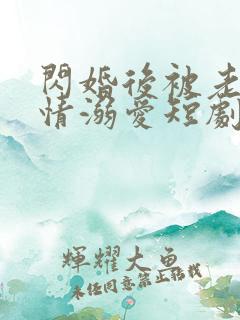 閃婚後被老
情溺愛短劇
輝耀大魚
未任同意禁止轉找